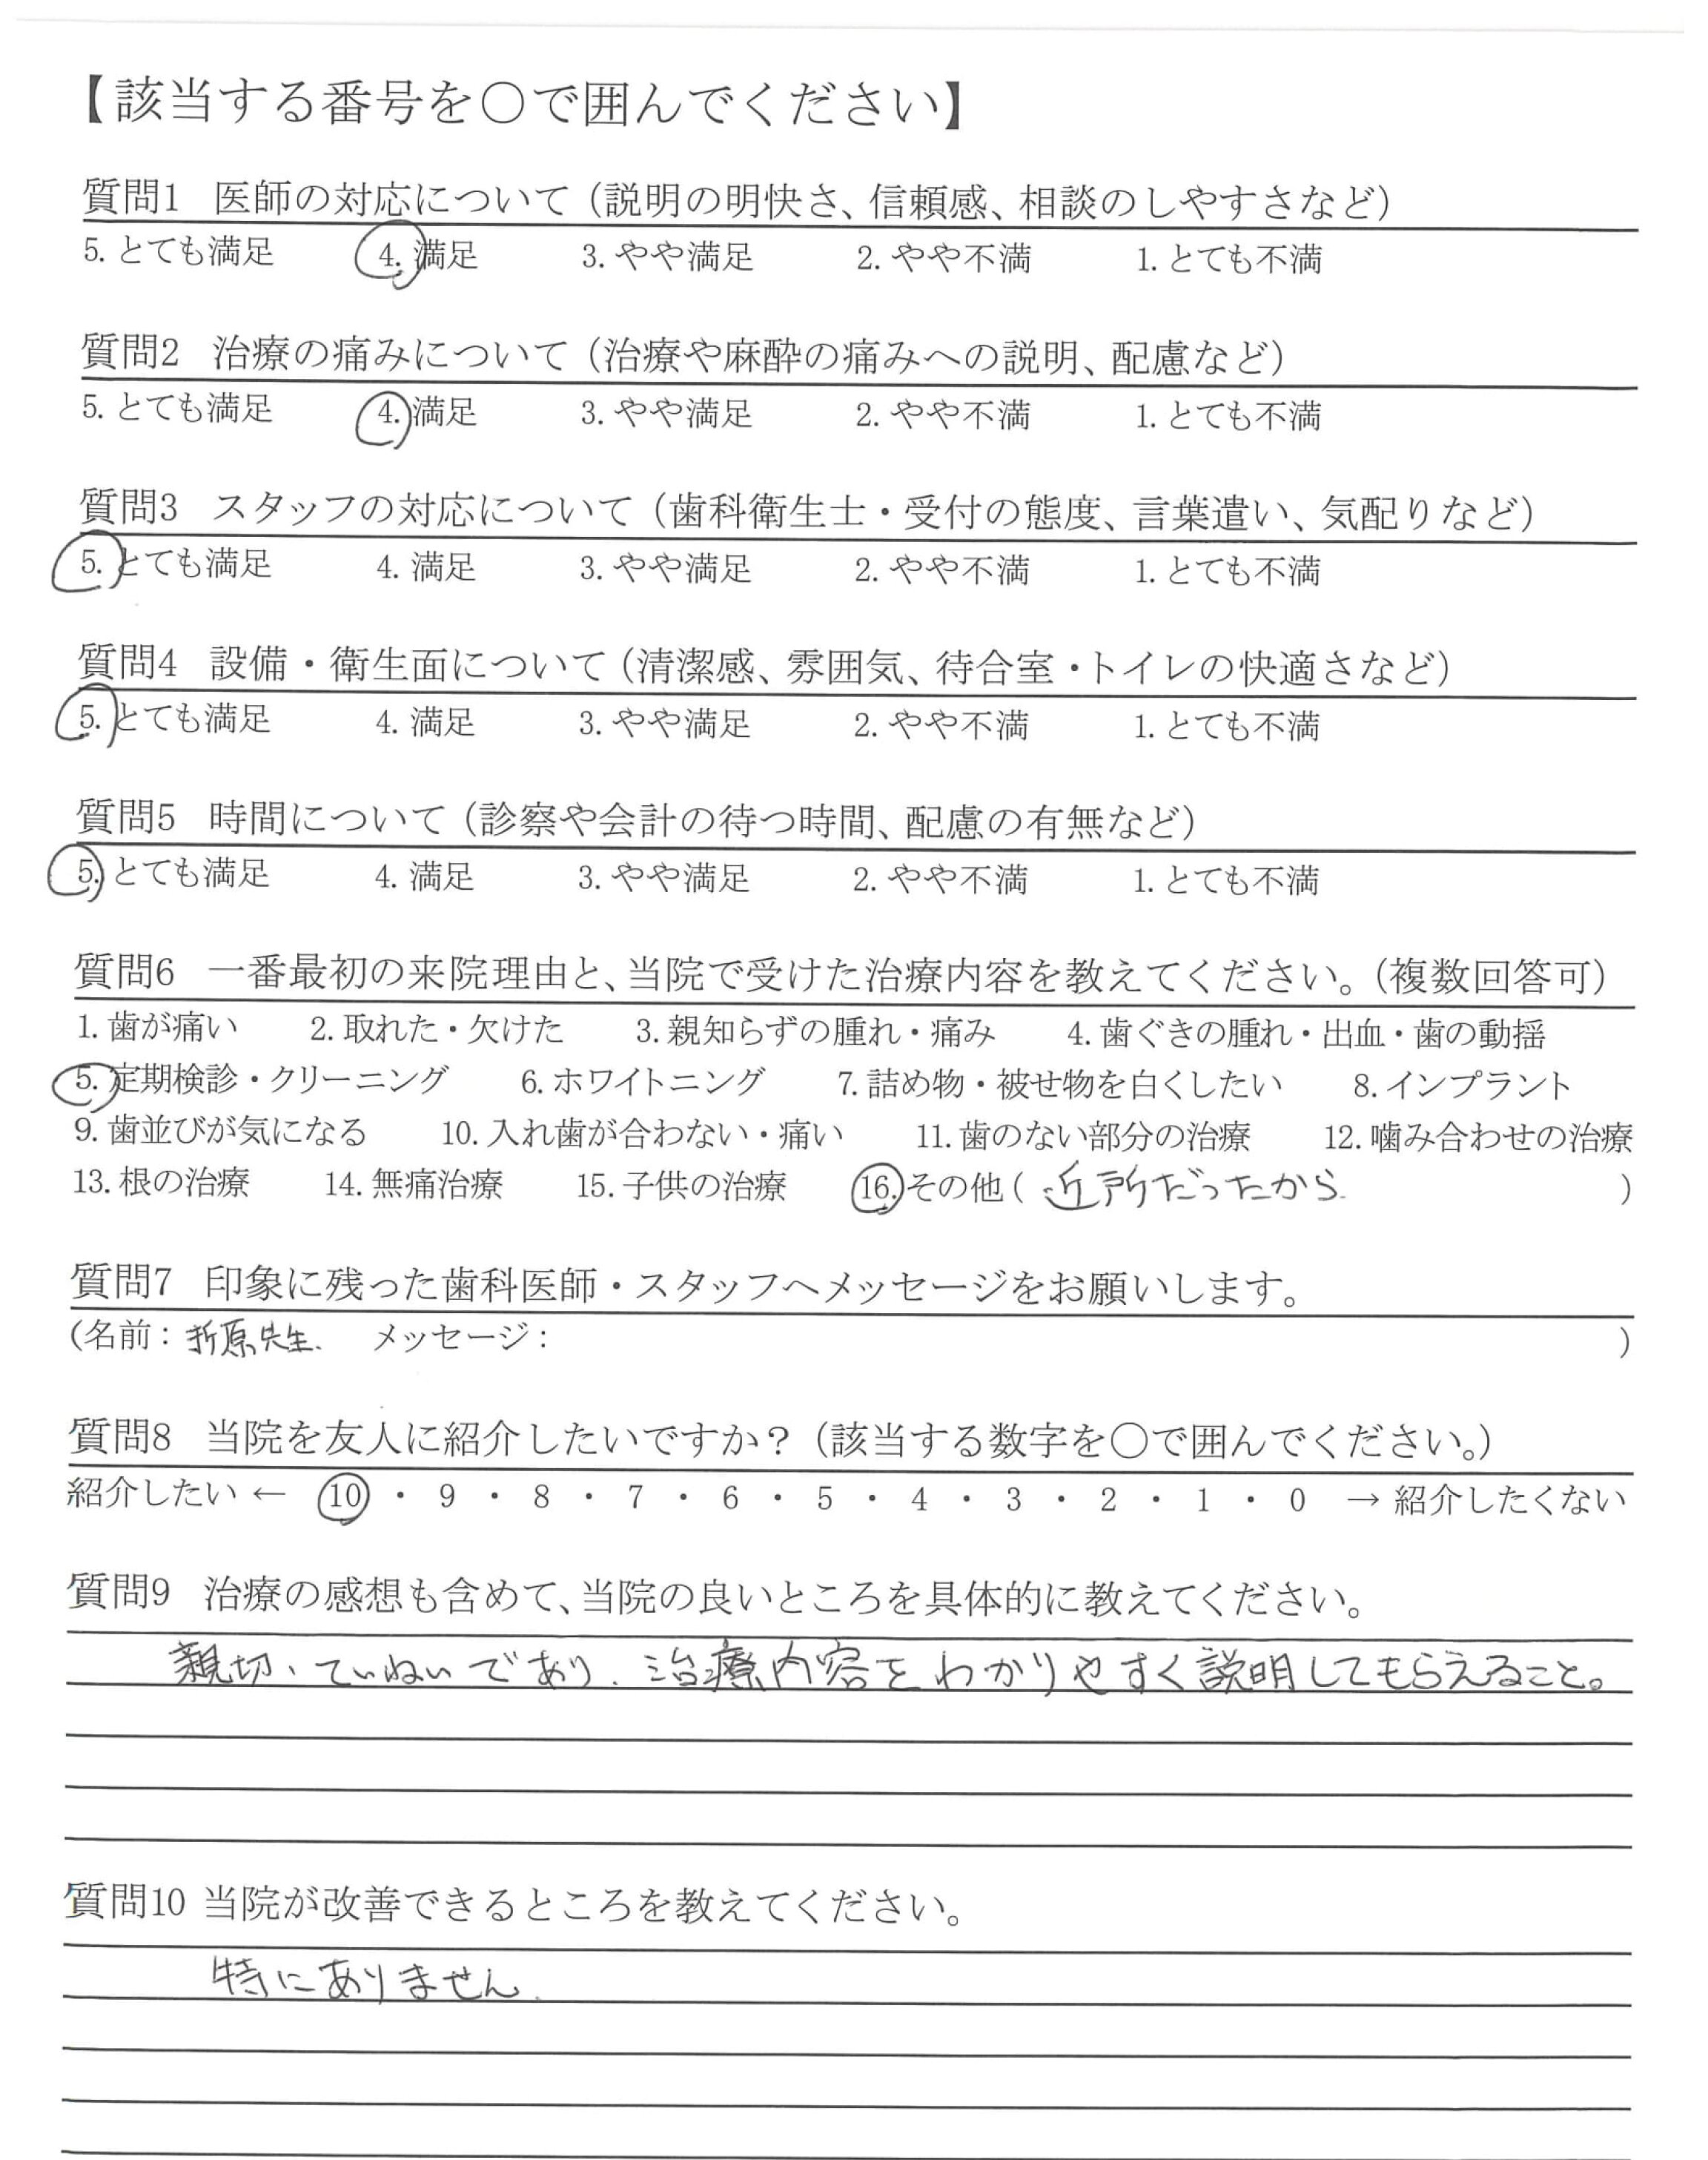 【該当する番号を〇で囲んでください】
質問1 医師の対応について（説明の明快さ、信頼感、相談のしやすさなど）
5. とても満足 4. 満足 3. やや満足 2. やや不満 1. とても不満
質問2 治療の痛みについて（治療や麻酔の痛みへの説明、配慮など）
5. とても満足 4. 満足 3. やや満足 2. やや不満 1. とても不満
質問3 スタッフの対応について（歯科衛生士・受付の態度、言葉遣い、気配りなど）
5. とても満足 4. 満足 3. やや満足 2. やや不満 1. とても不満
質問4 設備・衛生面について（清潔感、雰囲気、待合室・トイレの快適さなど）
5. とても満足 4. 満足 3. やや満足 2. やや不満 1. とても不満
質問5 時間について（診察や会計の待つ時間、配慮の有無など）
5. とても満足 4. 満足 3. やや満足 2. やや不満 1. とても不満
質問6 一番最初の来院理由と、当院で受けた治療内容を教えてください。（複数回答可）
1. 歯が痛い 2. 取れた・欠けた 3. 親知らずの腫れ・痛み 4. 歯ぐきの腫れ・出血・歯の動揺
5. 定期検診・クリーニング 6. ホワイトニング 7. 詰め物・被せ物を白くしたい 8. インプラント
9. 歯並びが気になる 10. 入れ歯が合わない・痛い 11. 歯のない部分の治療 12. 噛み合わせの治療
13. 根の治療 14. 無痛治療 15. 子供の治療 16. その他（近所だったから）
質問7 印象に残った歯科医師・スタッフへメッセージをお願いします。
（名前：折原先生. メッセージ：）
質問8 当院を友人に紹介したいですか？（該当する数字を〇で囲んでください。）
紹介したい ← 10 ・ 9 ・ 8 ・ 7 ・ 6 ・ 5 ・ 4 ・ 3 ・ 2 ・ 1 ・ 0 → 紹介したくない
質問9 治療の感想も含めて、当院の良いところを具体的に教えてください。
親切、ていねいであり、治療内容をわかりやすく説明してもらえること。
質問10 当院が改善できるところを教えてください。
特にありません.